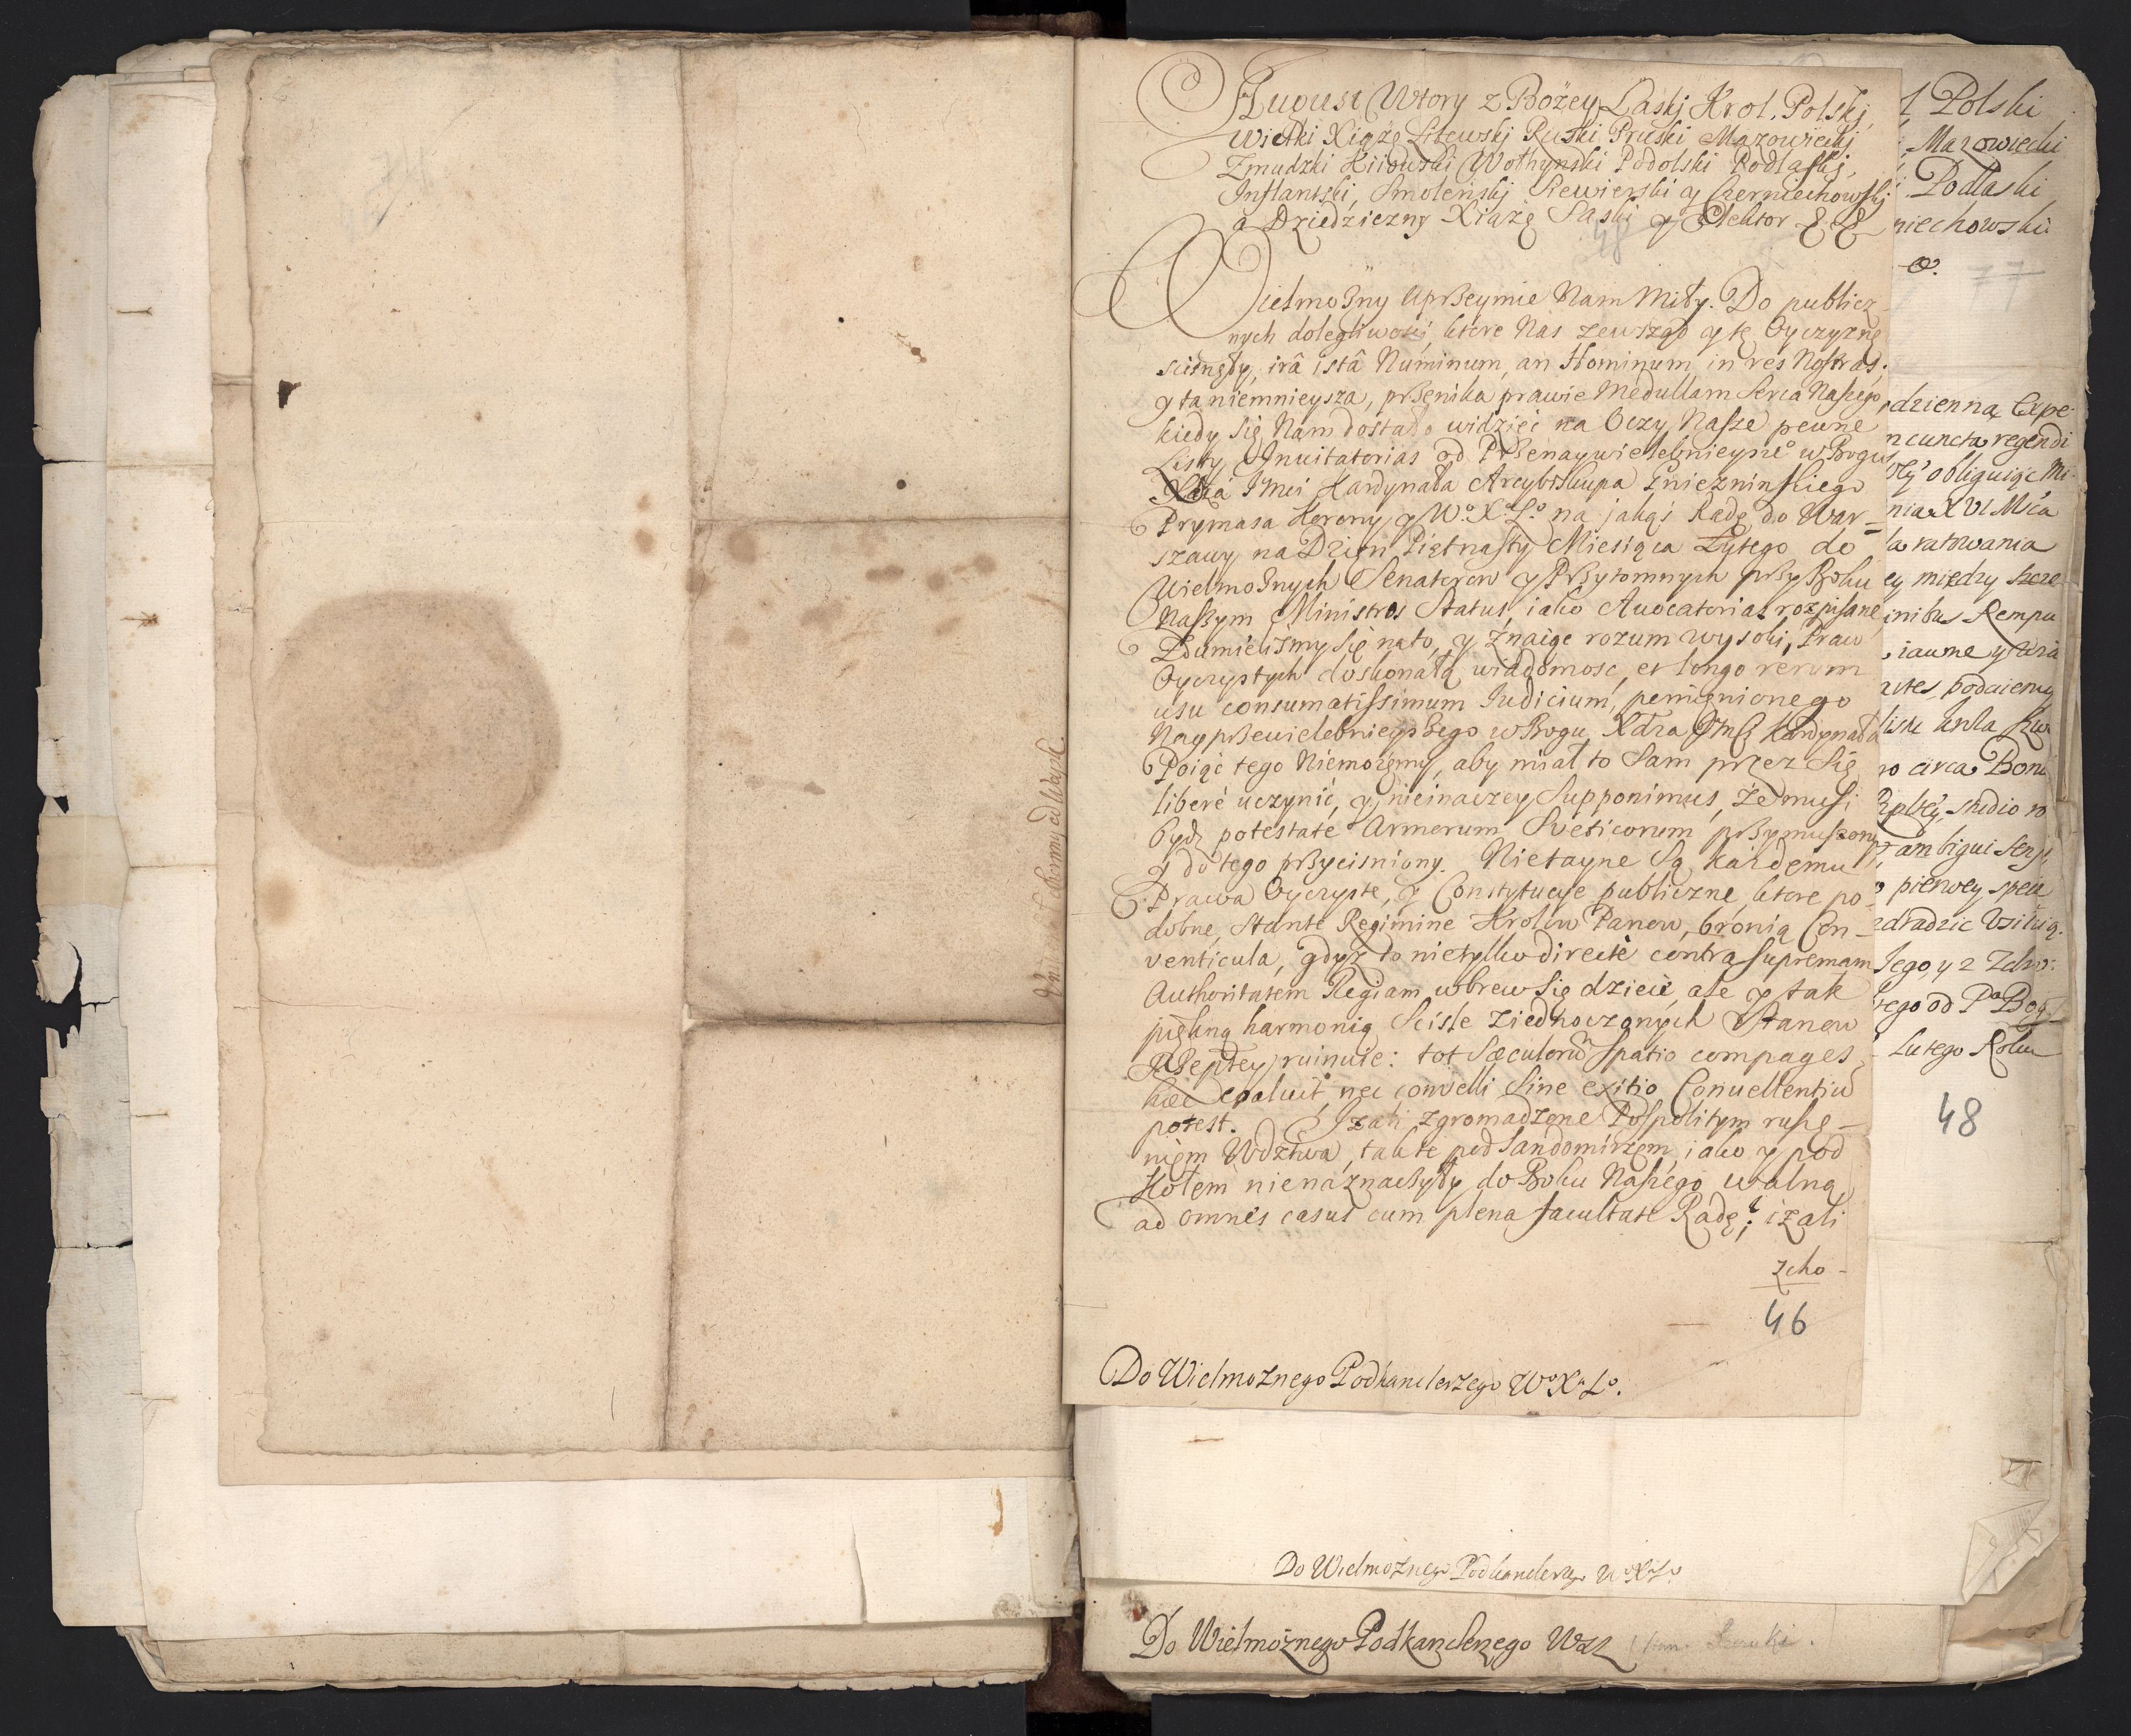 August Wtory z Bożey Łaski Krol Polski,
Wielki Xiążę Litewski Ruski Pruski Mazowiecki
Żmudzki Kiiowski Wołhynski Podolski Podlaski,
Inflantski, Smoleński Siewierski y Czerniechowski
a Dziedziczny Xiążę Saski y Elektor & &
48
Wielmożny Uprzeymie Nam Miły. Do publicz
nych dolegliwości, ktore Nas zewsząd y tę Oyczyznę
scisnęły, irâ istâ Numinum, an Hominum, in res Nostras,
y ta niemnieysza, przenika prawie Medullam Serca Naszego,
kiedy się Nam dostało widzieć na Oczy Nasze pewne
Listy Inuitatorias od Przenaywielebnieyszeº w Bogu
Xdza Jmci Kardynała Arcybiskupa Gnieznińskiego
Prymasa Korony y Wº. Xª. Lº. na jakąś Radę do War=
szawy na Dzień Piętnasty Miesiąca Lutego do
Wielmożnych Senatorow y Przytomnych przy Boku
Naszym Ministros Status, iako Auocatorias rozpisane,
Zdumieliśmy się na to, y znaiąc rozum wysoki, Praw
Oyczystych doskonałą wiadomość, et longo rerum
usu consumatissimum Iudicium, pomienionego
Nayprzewielebnieyszego w Bogu Xdza Jmci Kardynała
Poiąć tego Niemożemy, aby miał to Sam przez Się
liberé uczynić, y nieinaczey Supponimus, że musi
bydź potestate Armorum Sveticorum przymuszony
y do tego przyciśniony. Nietayne Są każdemu
Prawa Oyczyste, y Constytucye publiczne, ktore po-
dobne, Stante Regimine Krolow Panow, bronią Con-
venticula, gdyż to nietylko directè contra Supremam
Authoritatem Regiam wbrew Się dzieie, ale y tak
piękną harmonią Sciśle Ziednoczonych Stanow
Rzeptey ruinuie: tot Sæculorũ Spatio compages
hæc coaluit, nec convelli Sine exitio Conuellentiũ
potest. Izali zgromadzone Pospolitym rusze-
niem Wdztwa, tak te pod Sandomirzem, iako y pod
Kołem nienaznaczyły do Boku Naszego walną
ad omnes casus cum plena facultate Radę; izali
zcho-
46
Do Wielmożnego Podkanclerzego Wº Xª Lº.
Do Wielmożnego Podkanclerzego Wº Xª Lº
Do Wielmożnego Podkanclerzego WXL
ł Polski
Mazowiecki
Podlaski
niechowski
&.
77
dzienną Expe-
n cuncta regendi
obliguiąc Mi-
nia XVI Mca
la ratowania
ey między szcze
inibus Rempu
iawne y
podaiemy
ro circa Boni
studio
ambigui Sensu
pierwey
zdradzic Vsiłuią.
rego od Pª Bog
Lutego Roku
48